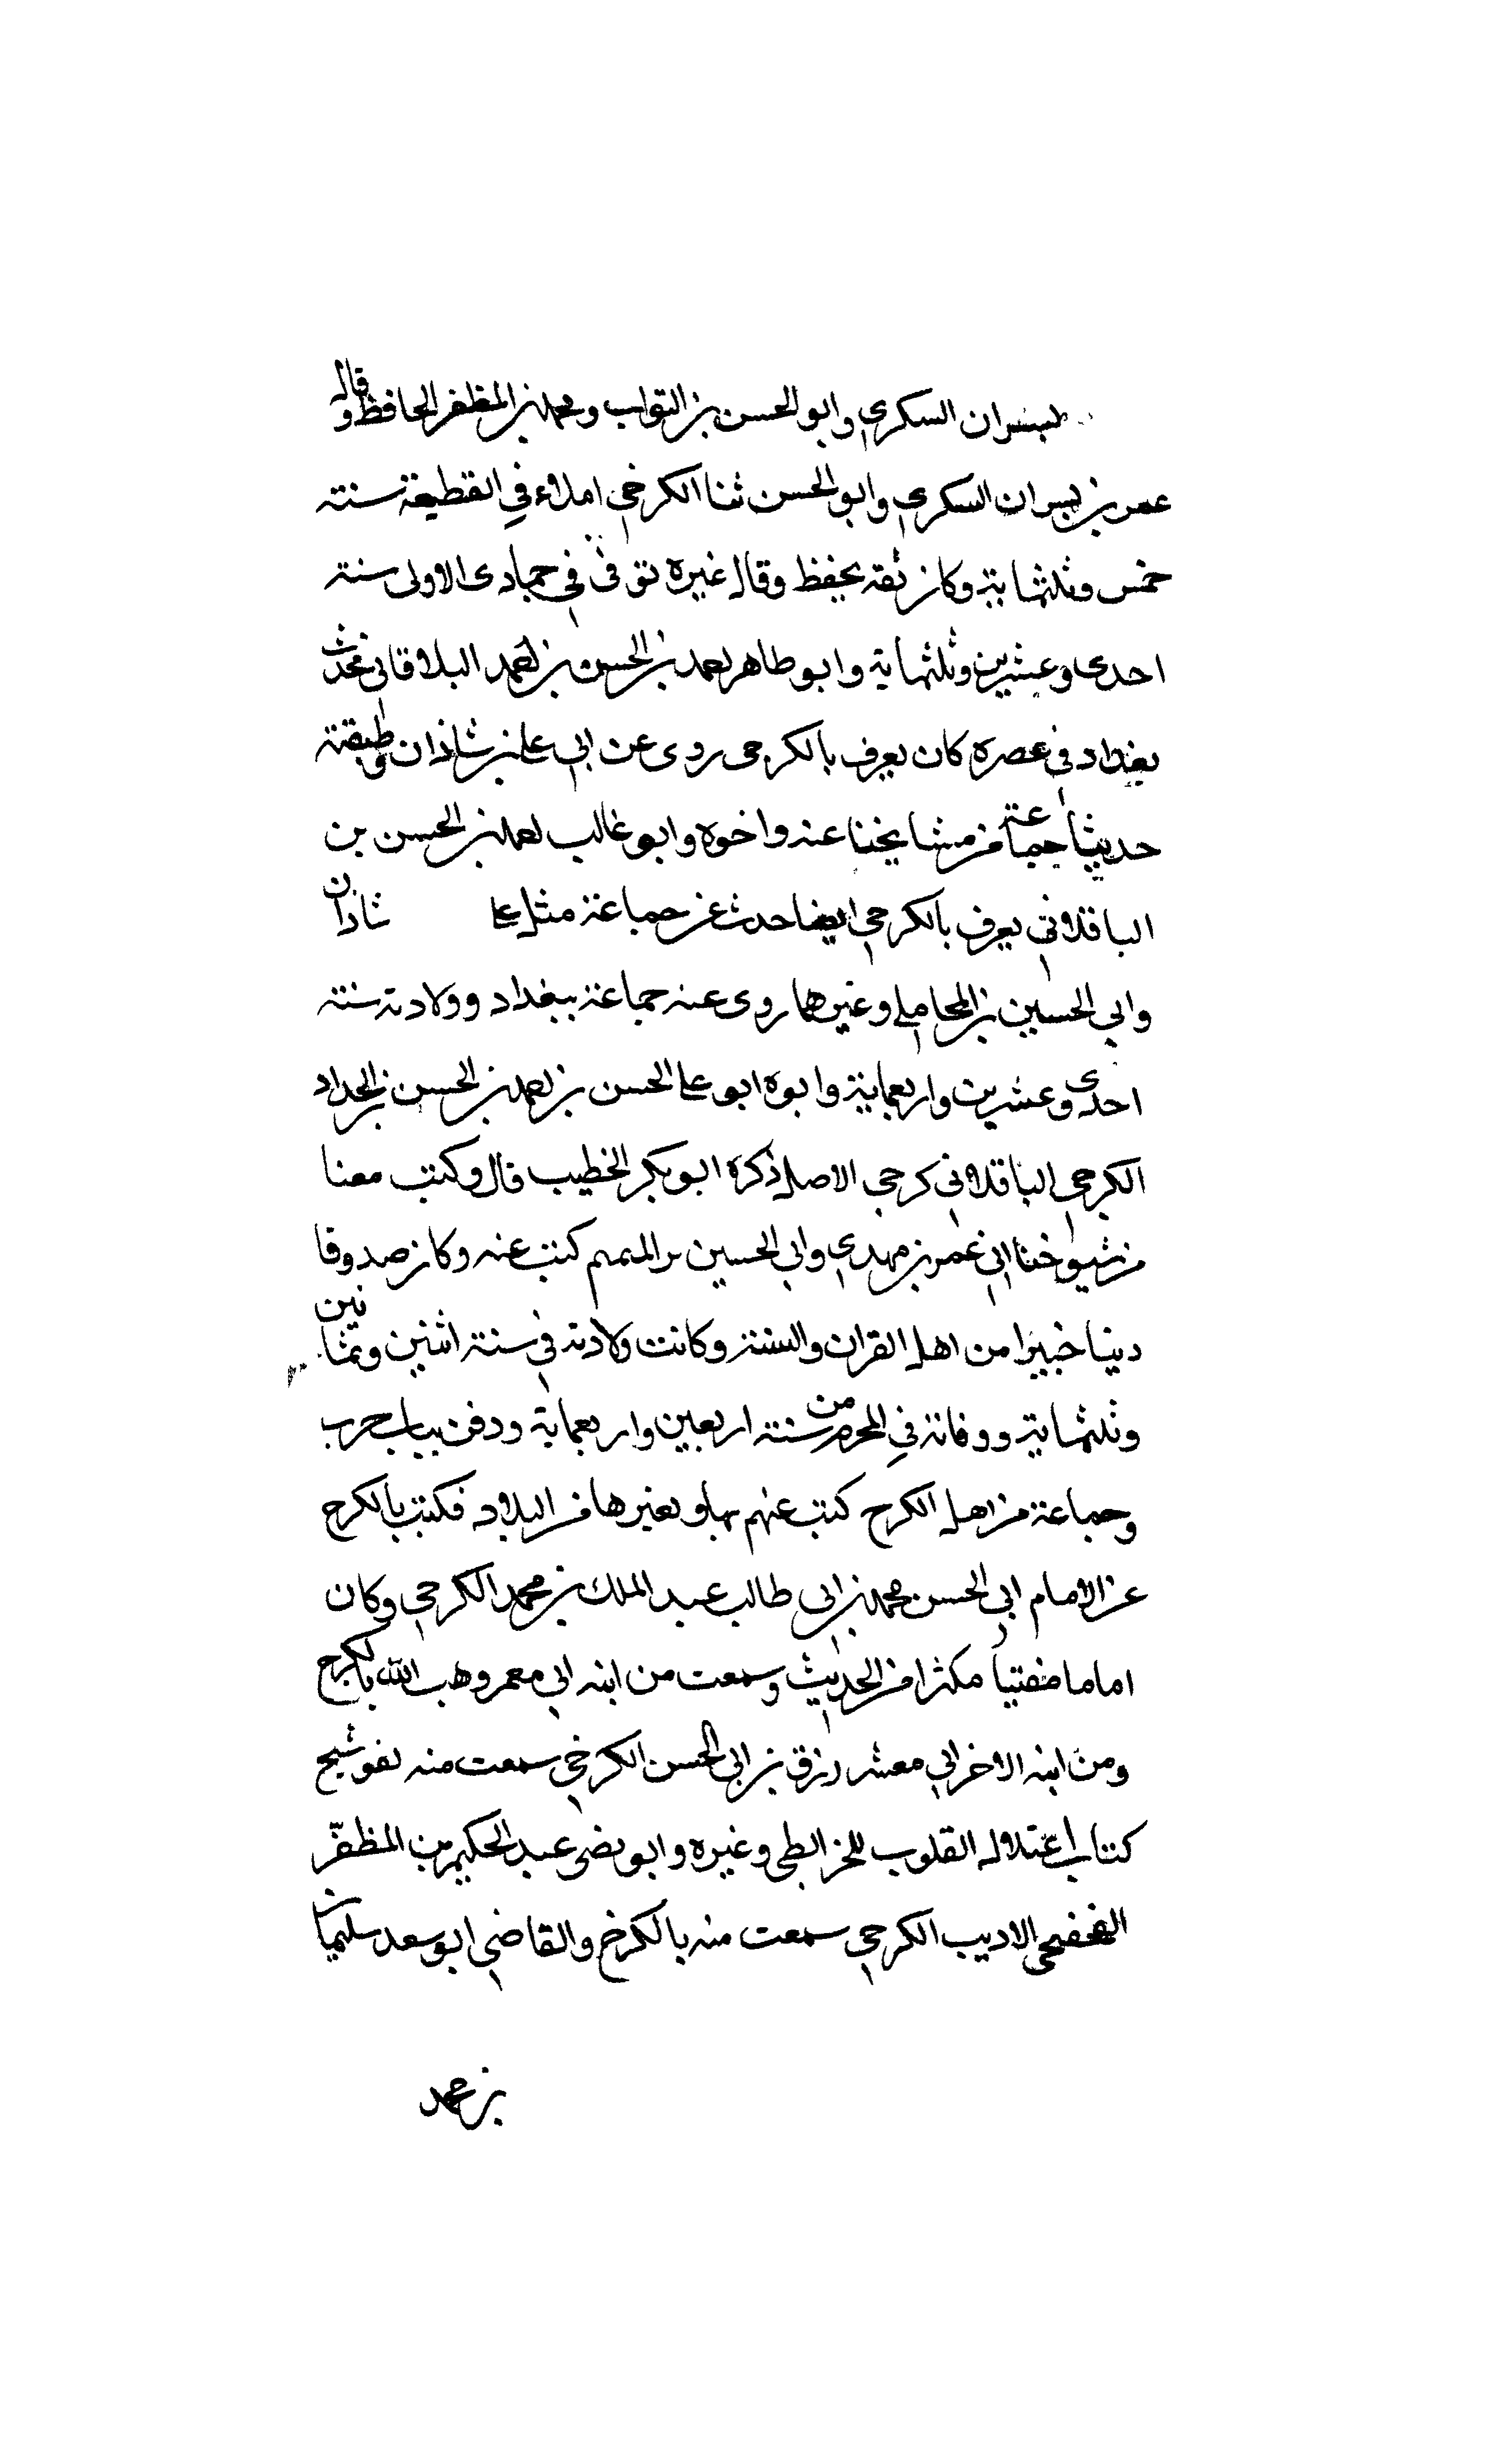 بسران السكري وابو الحسن بن التواب ومحمد بن المظفر الحافظ وقال
عمر بن بسران السكري وابو الحسن ثنا الكرخي املاء في القطيعة سنة
خمس وثلثماية وكان ثقة يحفظ وقال غيره توفى في جمادى الاولى سنة
احدى وعشرين وثلثماية وابو طاهر احمد بن الحسن بن احمد البلاقاني محدث
بغداد في عصره كان يعرف بالكرجى روى عن ابي على بن شاذان وطبقته
حديثا جماعة من مشايخنا عنه واخوه وابو غالب احمد بن الحسن بن
الباقلاني يعرف بالكرجي ايضا حدث عن جماعة مثل على شاذان
وابي الحسين بن المحاملي وغيرهما روى عنه جماعة ببغداد وولادته سنة
احدى وعشرين واربعماية وابوه ابو على الحسن بن احمد بن الحسن بن الحداد
الكرجي الباقلاني كرجي الاصل ذكره ابو بكر الخطيب قال وكتب معنا
من شيوخنا ابي عمر بن مهدي وابي الحسين بن المتيم كتبت عنه وكان صدوقا
دينا خيرا من اهل القران والسنة وكانت ولادته في سنة اثنين وثمانين
وثلثماية ووفاته في المحرم من سنة اربعين واربعماية ودفن بباب حرب
وجماعة من اهل الكرج كتبت عنهم بها وبغيرها من البلاد فكتبت بالكرج
عن الامام ابي الحسن محمد بن ابى طالب عبد الملك بن محمد الكرجي وكان
اماما مفتيا مكثرا من الحديث وسمعت من ابنه ابي معمر وهب الله بالكرج
ومن ابنه الاخر ابي معشر رزق بن ابي الحسن الكرخي سمعت منه بفوشنج
كتاب اعتلال القلوب للخرايطى وغيره وابو نصر عبد الحكيم بن المظفر
الفحفحى الاديب الكرجي سمعت منه بالكرخ والقاضي ابو سعد سليمان
بن محمد